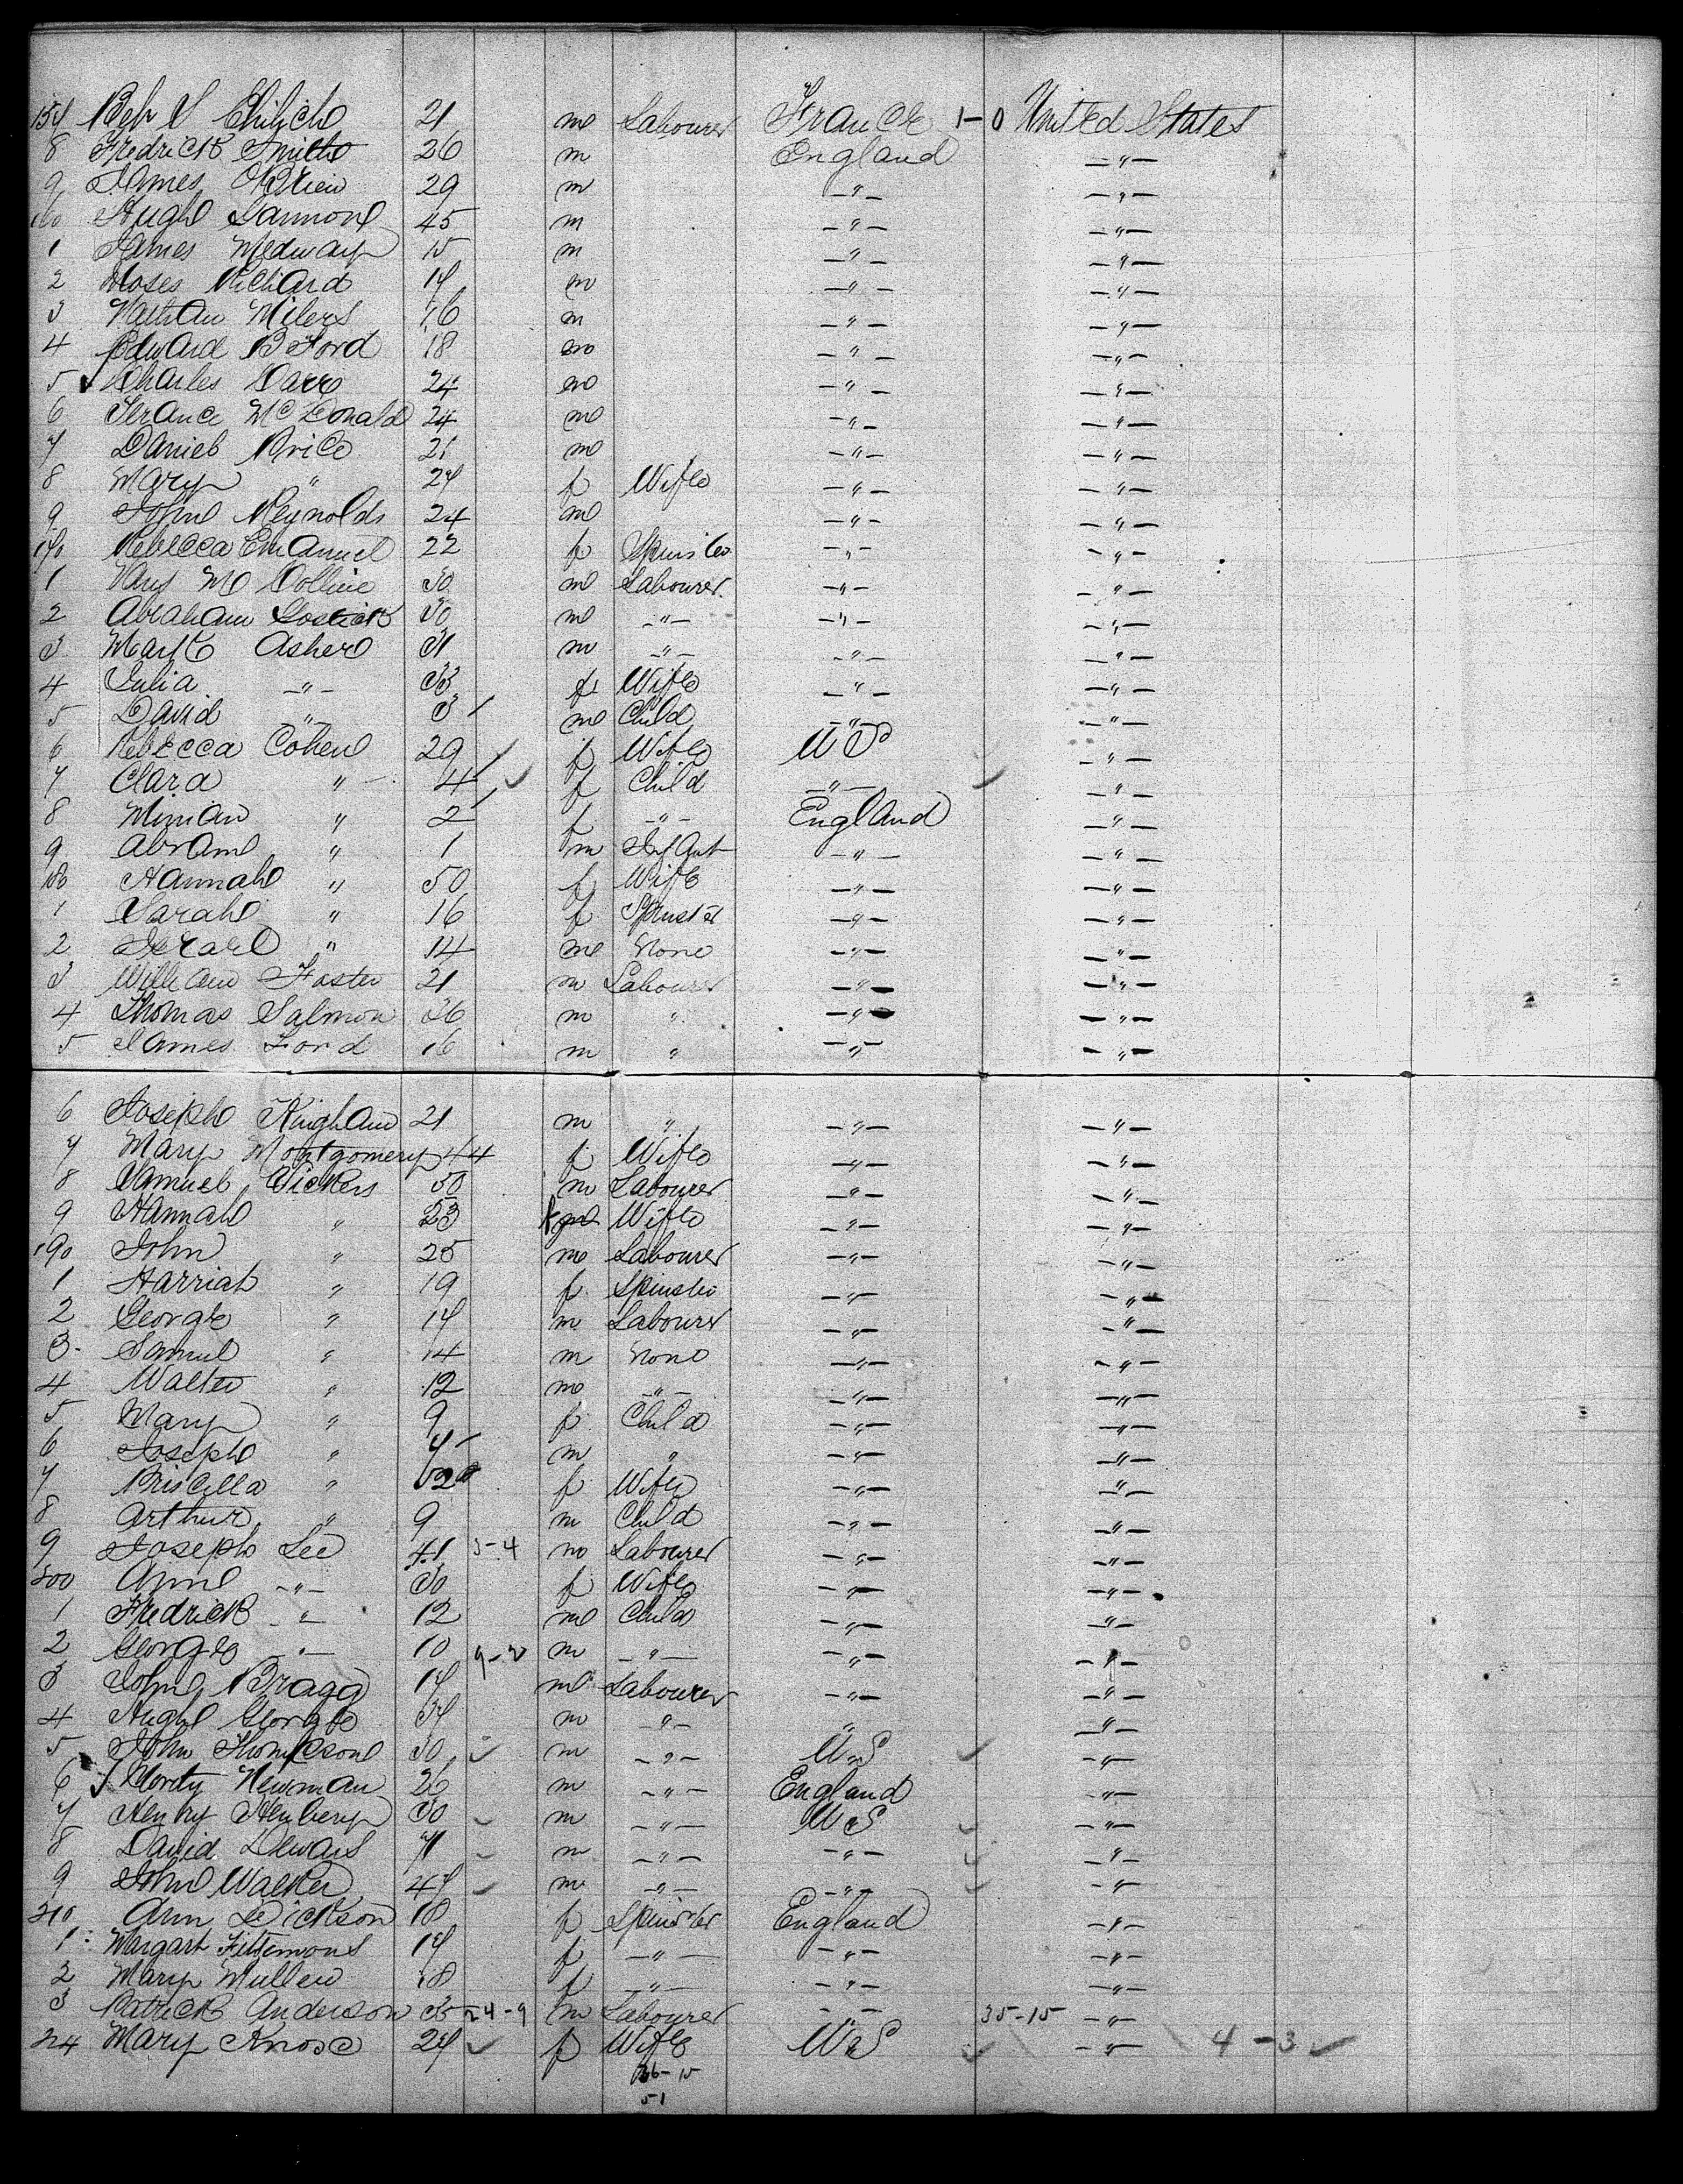 21 m Labourer France 1-0 United States
8 Fredrick Smith 26 m England -"-
9 James OBrien 29 m -"- -"-
160 Hugh 45 m -"- -"-
1 James Medway 15 m -"- -"-
2 Moses Richard 17 m -"- -"-
3 Nathan Milers 16 m -"- -"-
4 Edward B Ford 18 m -"- -"-
5 Charles Carr 24 m -"- -"-
6 Terance McDonald 24 m -"- -"-
7 Daniel Price 21 m -"- -"-
8 Mary " 27 f Wife -"- -"-
9 John Reynolds 24 m -"- -"-
170 Rebecca Emanuel 22 f Spinster -"- -"-
1 30 m Labourer -"- -"-
2 Abraham 30 m -"- -"- -"-
3 Mark Asher 31 m -"- -"- -"-
4 Julia -"- 33 f Wife -"- -"-
5 David -"- 3 m Child -"- -"-
6 Rebecca Cohen 29 f Wife US -"-
7 Clara " 4 f Child -"- -"-
8 Miriam " 2 f -"- England -"-
9 Abram " 1 m Infant -"- -"-
180 Hannah " 50 f Wife -"- -"-
1 Sarah " 16 f Spinster -"- -"-
2 Israel " 14 m None -"- -"-
3 William Foster 21 m Labourer -"- -"-
4 Thomas Salmon 26 m " -"- -"-
5 James Ford 16 m " -"- -"-
6 Joseph 21 m " -"- -"-
7 Mary Montgomery 44 f Wife -"- -"-
8 Samuel Vickers 50 m Labourer -"- -"-
9 Hannah " 23 f Wife -"- -"-
190 John " 25 m Labourer -"- -"-
1 Harriah " 19 f Spinster -"- -"-
2 George " 17 m Labourer -"- -"-
3 Samuel " 14 m None -"- -"-
4 Walter " 12 m -"- -"- -"-
5 Mary " 9 f Child -"- -"-
6 Joseph " 7 m " -"- -"-
7 Priscilla " f Wife -"- -"-
8 Arthur " 9 m Child -"- -"-
9 Joseph Lee 41 5-4 m Labourer -"- -"-
200 Ann -"- 30 f Wife -"- -"-
1 Fredrick -"- 12 m Child -"- -"-
2 George -"- 10 m -"- -"- -"-
3 John Bragg 17 m Labourer -"- -"-
4 Hugh George 37 m -"- " -"-
5 John Thompson 30 m -"- US -"-
6 Newman 26 m -"- England -"-
7 Henry 30 m -"- US -"-
8 David m -"- -"- -"-
9 John Walker 47 m -"- -"- -"-
210 Ann Dickson 18 f Spinster England -"-
1 Margart Fittimons 17 f -"- -"- -"-
2 Mary Mullen 18 f -"- -"- -"-
3 Patrick Anderson 35 24-9 m Labourer -"- 35-15 -"-
214 Mary Knox 27 f Wife US -"- 4-3
36-15
51